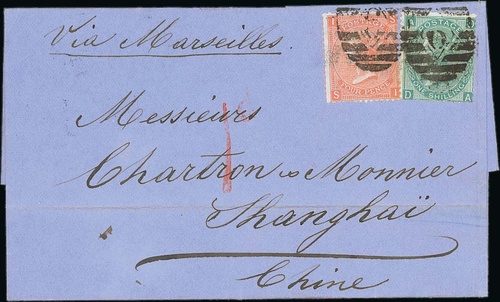 Via Marseilles.
POSTAGE
FOUR PENCE
S I
POSTAGE
ONE SHILLING
D A
Messieurs
Chartron & Monnier
Shanghaï
Chine